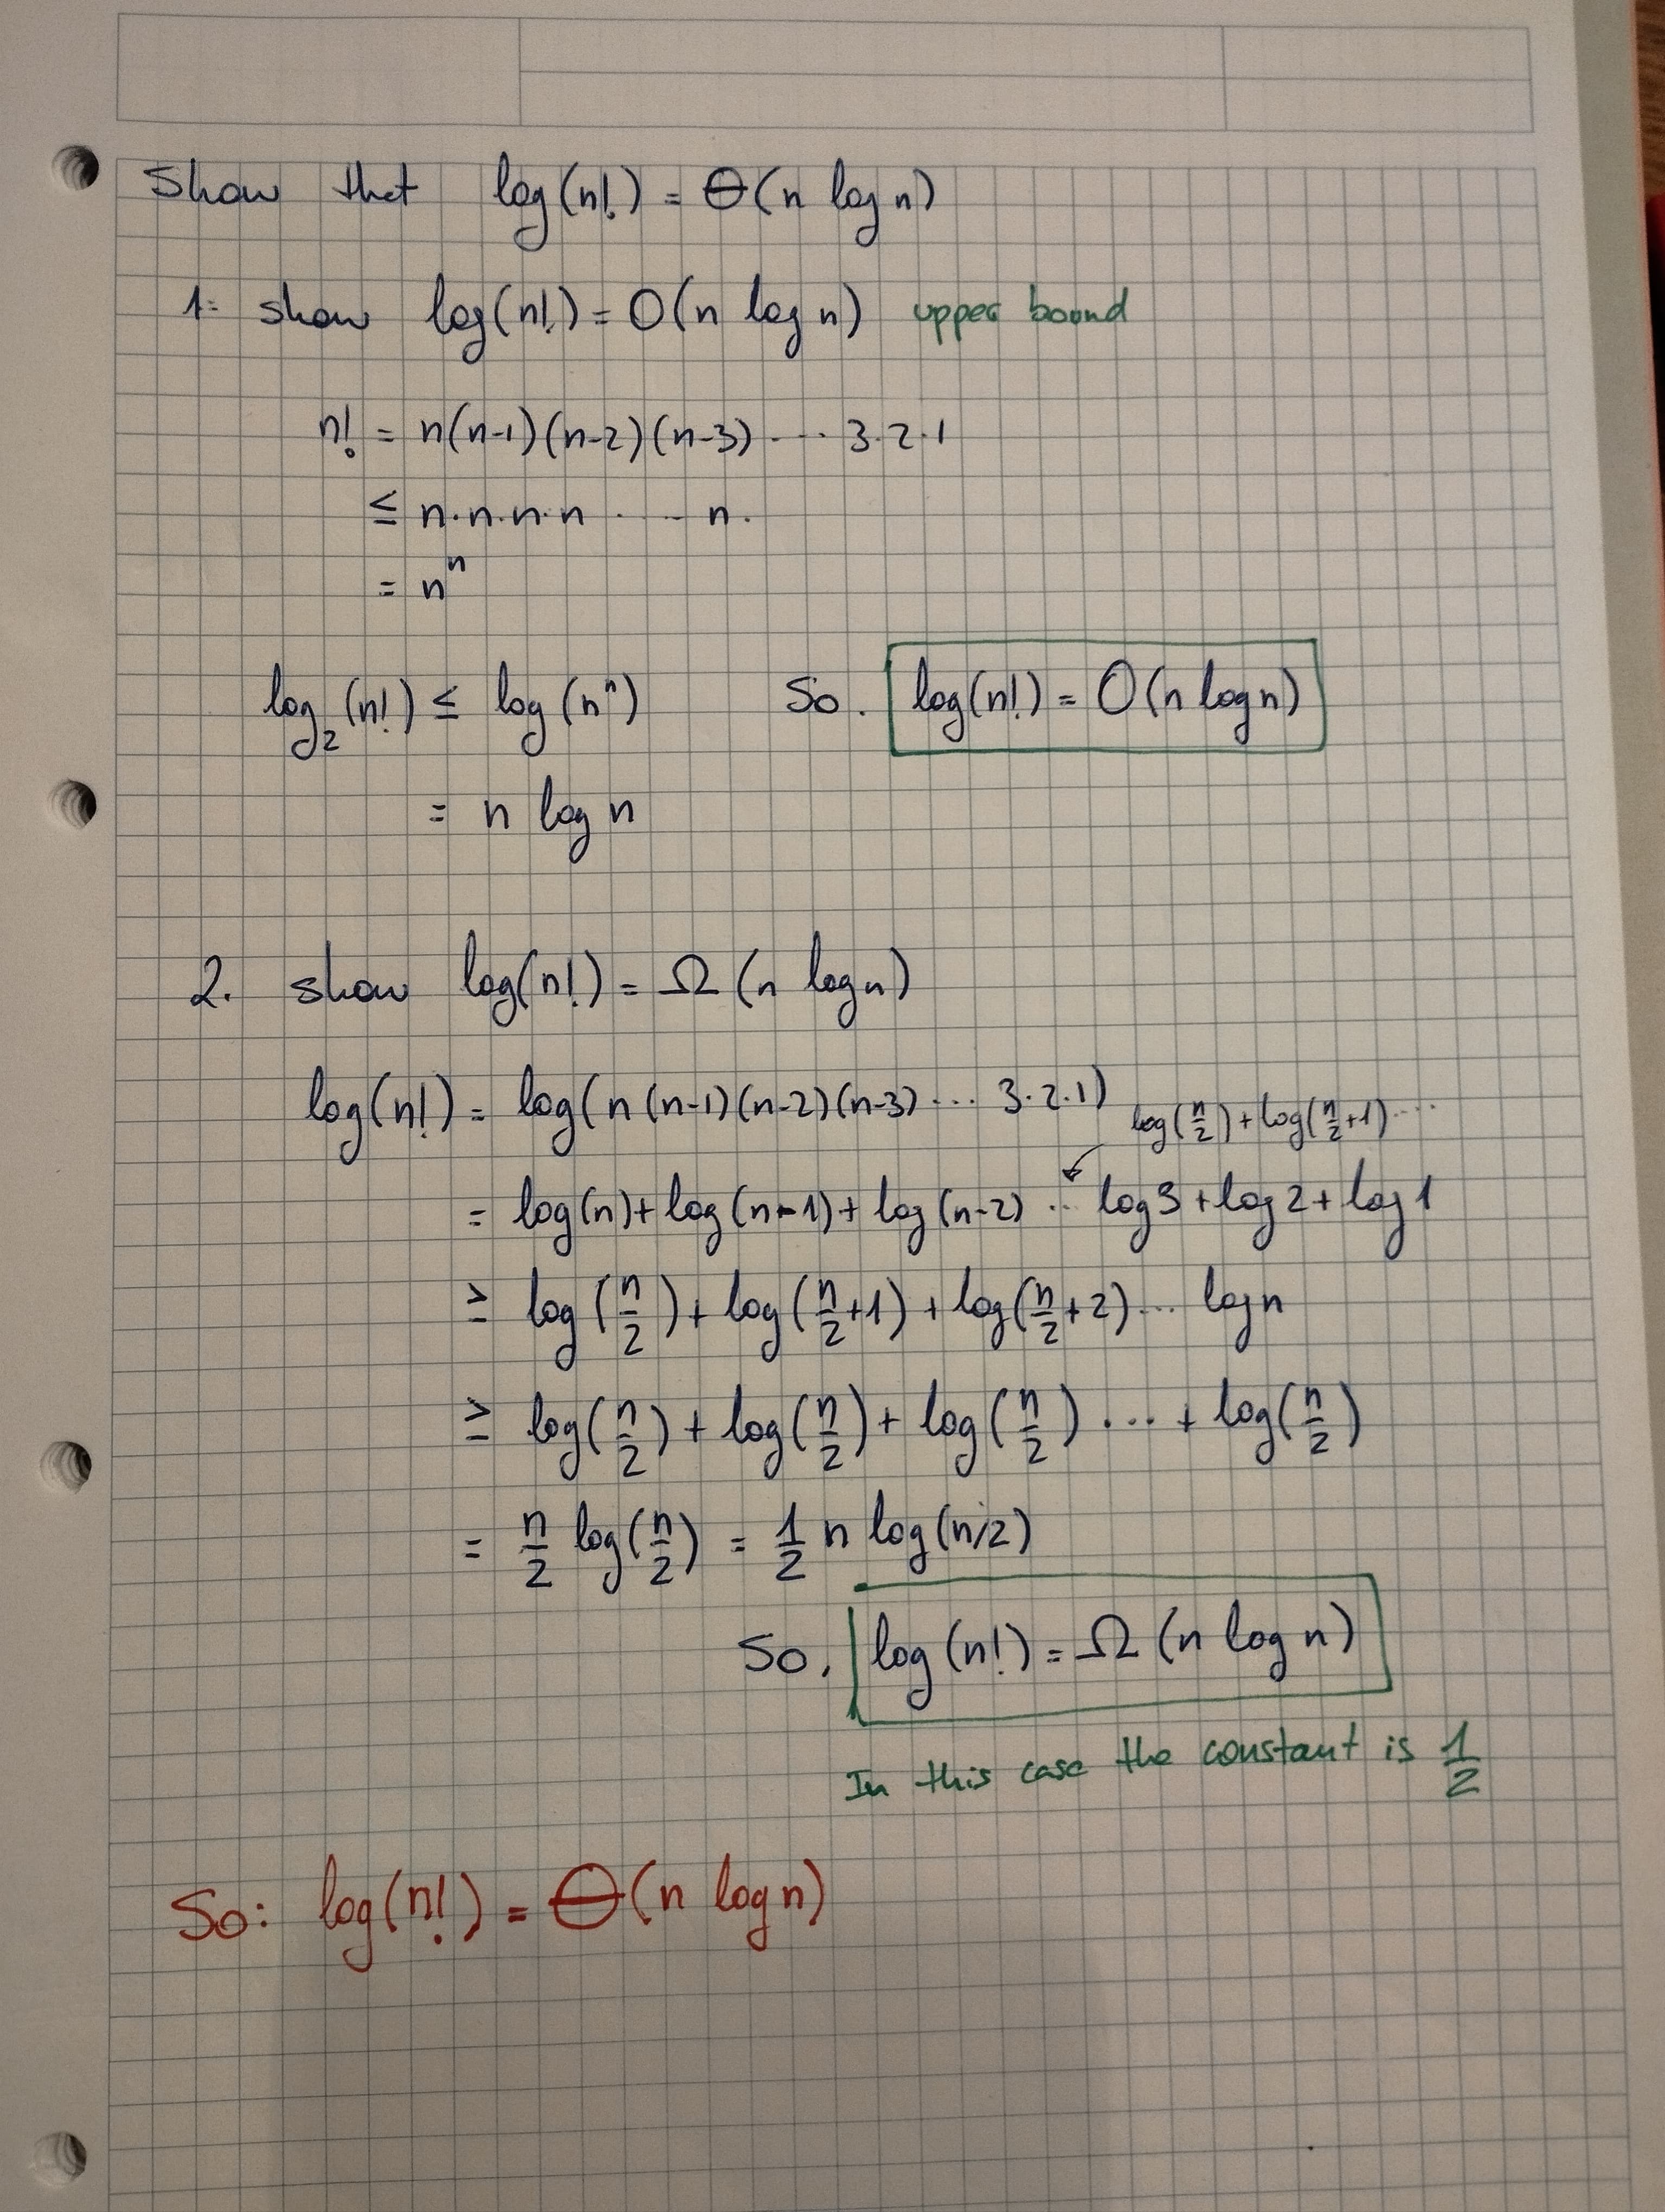 Show that log(n!) = Θ(n log n)
1. show log(n!) = O(n log n) upper bound
n! = n(n-1)(n-2)(n-3) ... 3·2·1
≤ n·n·n·n · ... n.
= nⁿ
log₂(n!) ≤ log(nⁿ) So. log(n!) = O(n log n)
= n log n
2. show log(n!) = Ω(n log n)
log(n!) = log(n(n-1)(n-2)(n-3) ... 3·2·1)
log(n/2) + log(n/2+1) ...
= log(n) + log(n-1) + log(n-2) ... log3 + log2 + log1
≥ log(n/2) + log(n/2+1) + log(n/2+2) ... log n
≥ log(n/2) + log(n/2) + log(n/2) ... + log(n/2)
= n/2 log(n/2) = 1/2 n log(n/2)
So, log(n!) = Ω(n log n)
In this case the constant is 1/2
So: log(n!) = Θ(n log n)